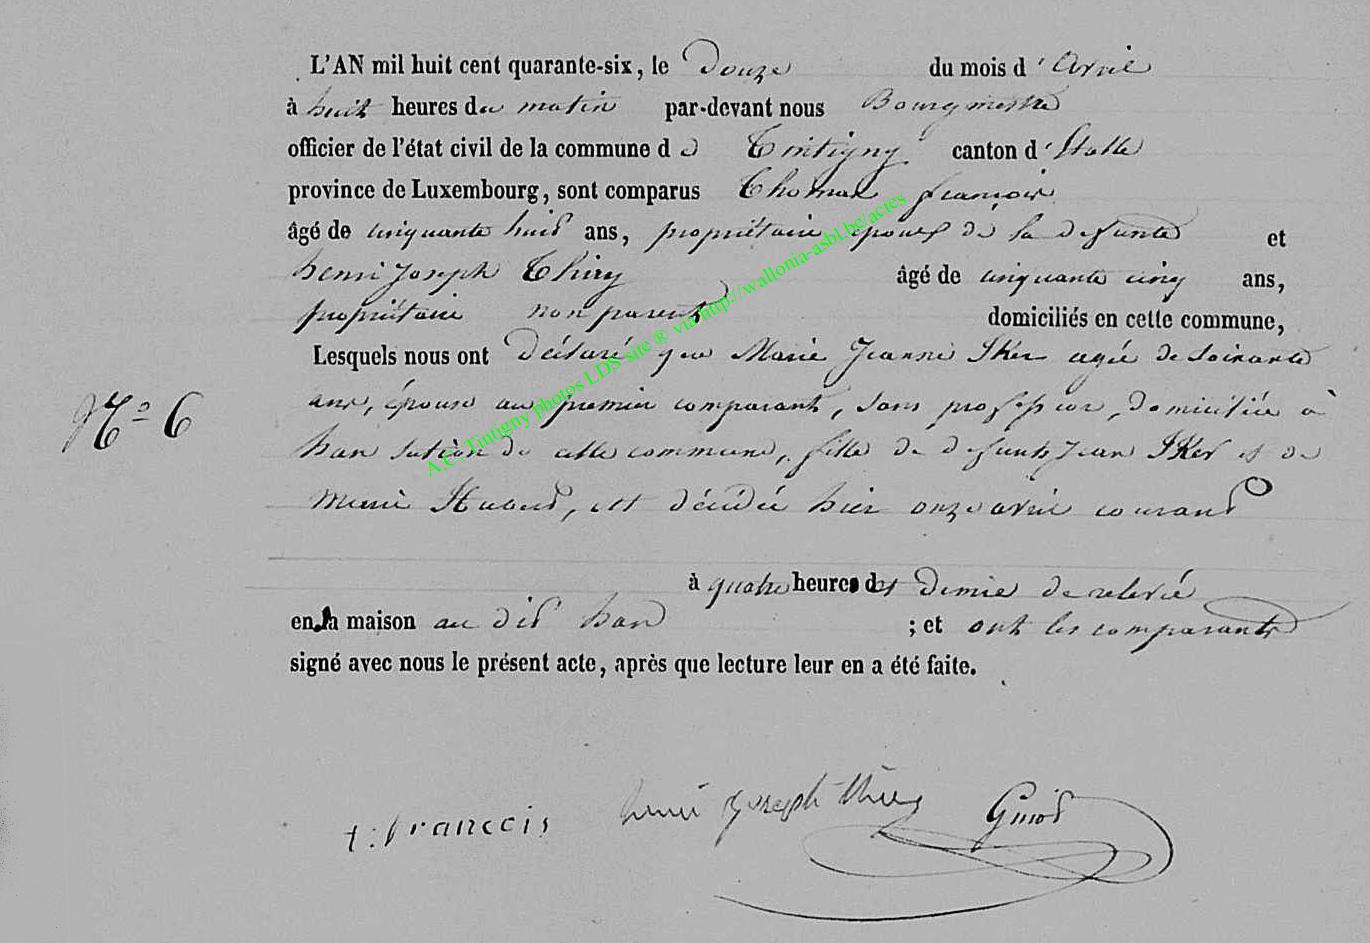 L'AN mil huit cent quarante-six, le Douze du mois d'Avril
à huit heures du matin par-devant nous Bourgmestre
officier de l'état civil de la commune de Tintigny canton d'Etalle
province de Luxembourg, sont comparus Thomas françois
âgé de cinquante huit ans, propriétaire époux de la defunte et
henri joseph Thiry âgé de cinquante cinq ans,
propriétaire non parent domiciliés en cette commune,
Lesquels nous ont Déclaré que Marie Jeanne Iker agée de soixante
N° 6
ans, épouse au premier comparant, sans profession, domiciliée à
han section de cette commune, fille de defunts Jean Iker et de
Marie Hubert, est décédée hier onze avril courant
à quatre heures et Demie de relevée
en sa maison au dit han ; et ont les comparants
signé avec nous le présent acte, après que lecture leur en a été faite.
t: francois henri joseph thiry Guiot
A.C. Tintigny photos LDS site ® via http://wallonia-asbl.be/actes